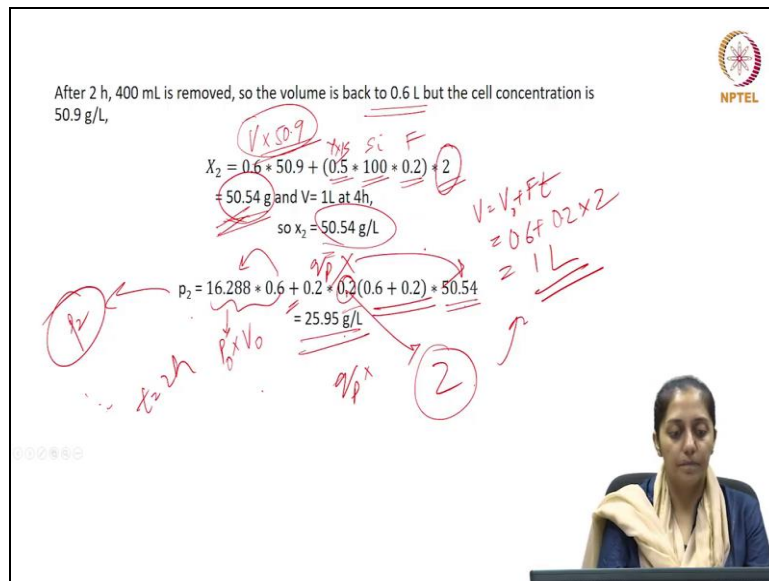 NPTEL
After 2 h, 400 mL is removed, so the volume is back to 0.6 L but the cell concentration is
50.9 g/L,
V x 50.9
Yx/s Si F
X₂ = 0.6 * 50.9 + (0.5 * 100 * 0.2) * 2
= 50.54 g and V= 1L at 4h,
so x₂ = 50.54 g/L
V = V₀ + Ft
= 0.6 + 0.2 x 2
= 1 L
qp X
p₂ = 16.288 * 0.6 + 0.2 * 0.2(0.6 + 0.2) * 50.54
= 25.95 g/L
P₂
P₀ x V₀
t = 2h
qp x
2